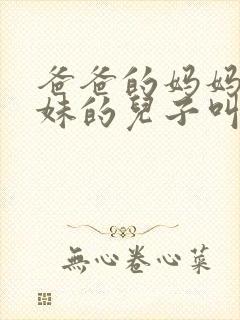 爸爸的妈妈
妹的兒子叫
無心卷心菜